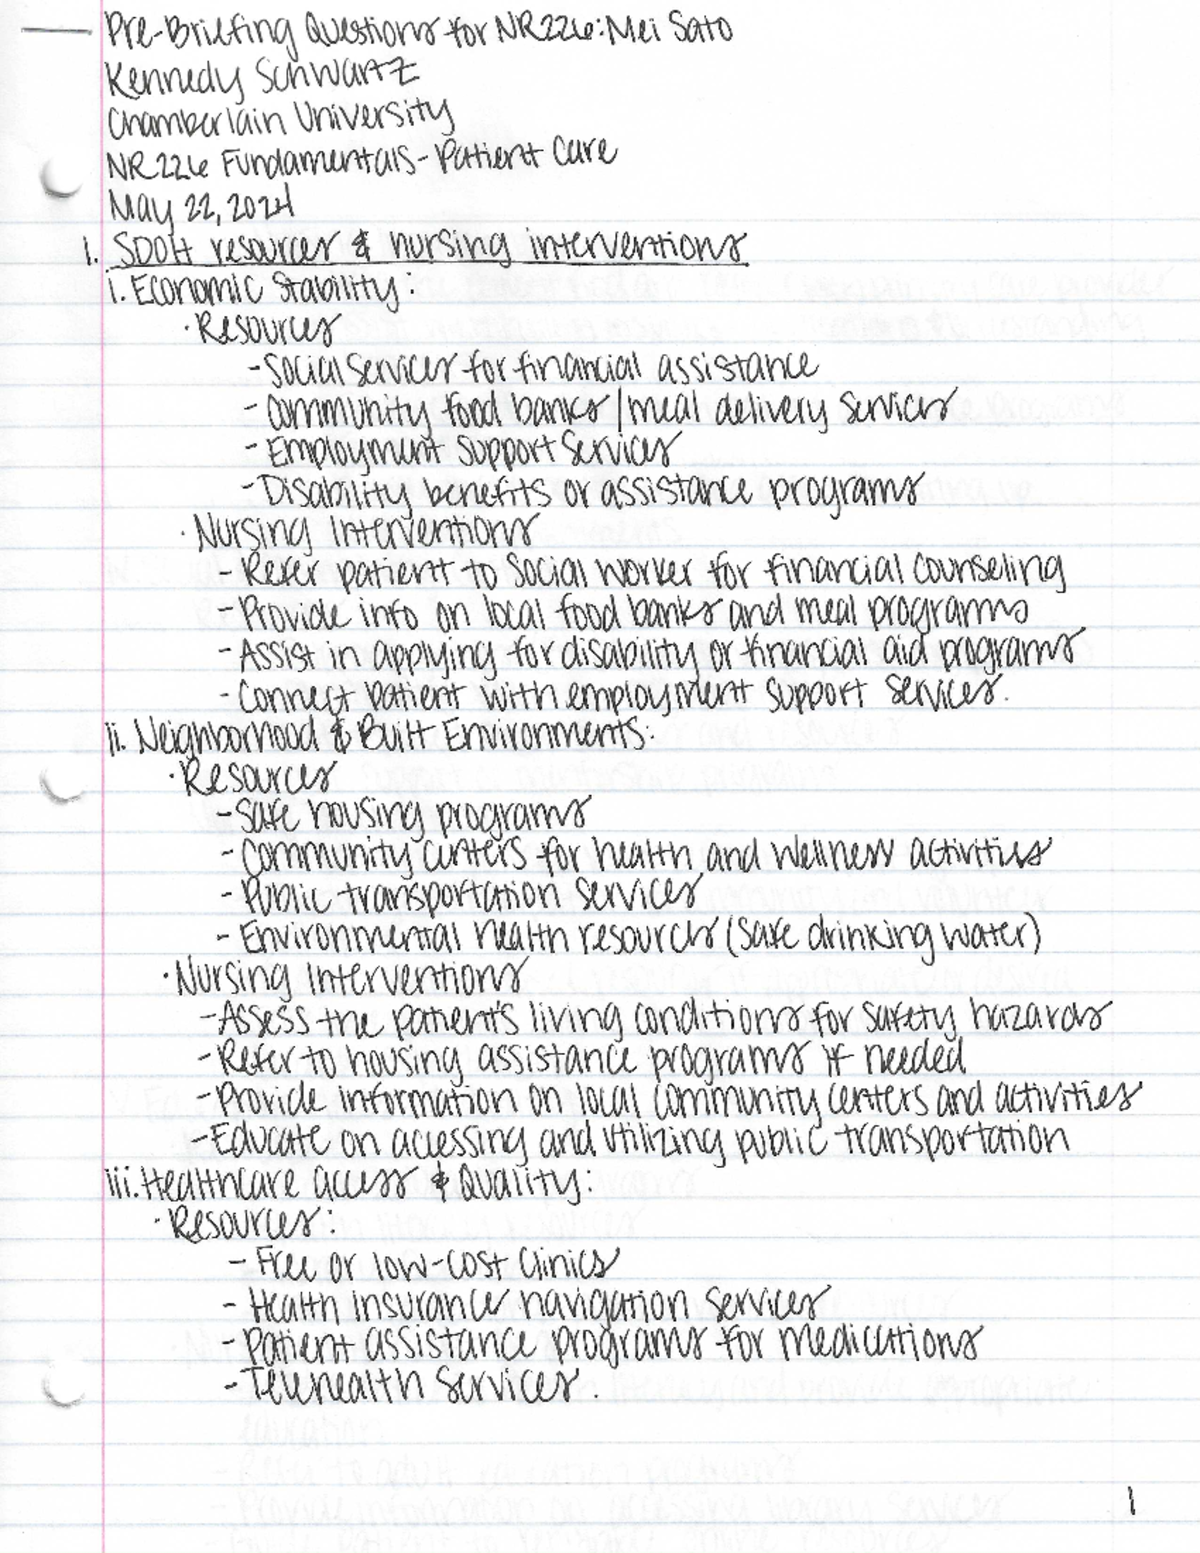 Pre-Briefing Questions for NR226: Mei Sato
Kennedy Schwartz
Chamberlain University
NR226 Fundamentals - Patient Care
May 22, 2024
1. SDOH resources & nursing interventions
i. Economic Stability:
· Resources
- Social Services for financial assistance
- Community food banks / meal delivery services
- Employment support services
- Disability benefits or assistance programs
· Nursing Interventions
- Refer patient to social worker for financial counseling
- Provide info on local food banks and meal programs
- Assist in applying for disability or financial aid programs
- Connect patient with employment support services.
ii. Neighborhood & Built Environments:
· Resources
- Safe housing programs
- Community centers for health and wellness activities
- Public transportation services
- Environmental health resources (safe drinking water)
· Nursing Interventions
- Assess the patient's living conditions for safety hazards
- Refer to housing assistance programs if needed
- Provide information on local community centers and activities
- Educate on accessing and utilizing public transportation
iii. Healthcare access & Quality:
· Resources:
- Free or low-cost clinics
- Health insurance navigation services
- Patient assistance programs for medications
- Telehealth services.
1